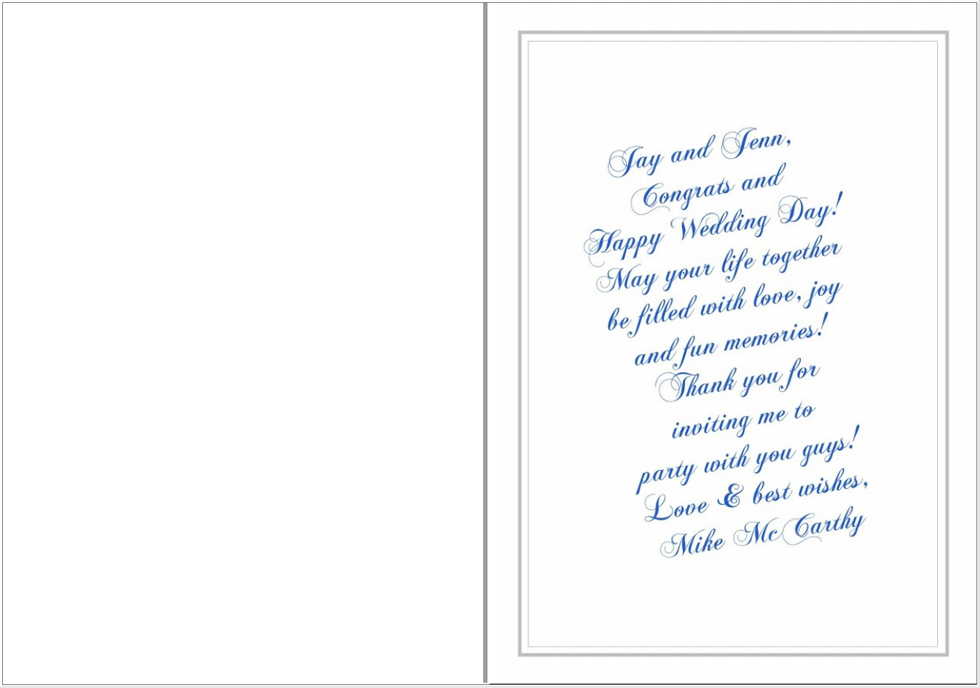 Jay and Jenn,
Congrats and
Happy Wedding Day!
May your life together
be filled with love, joy
and fun memories!
Thank you for
inviting me to
party with you guys!
Love & best wishes,
Mike McCarthy